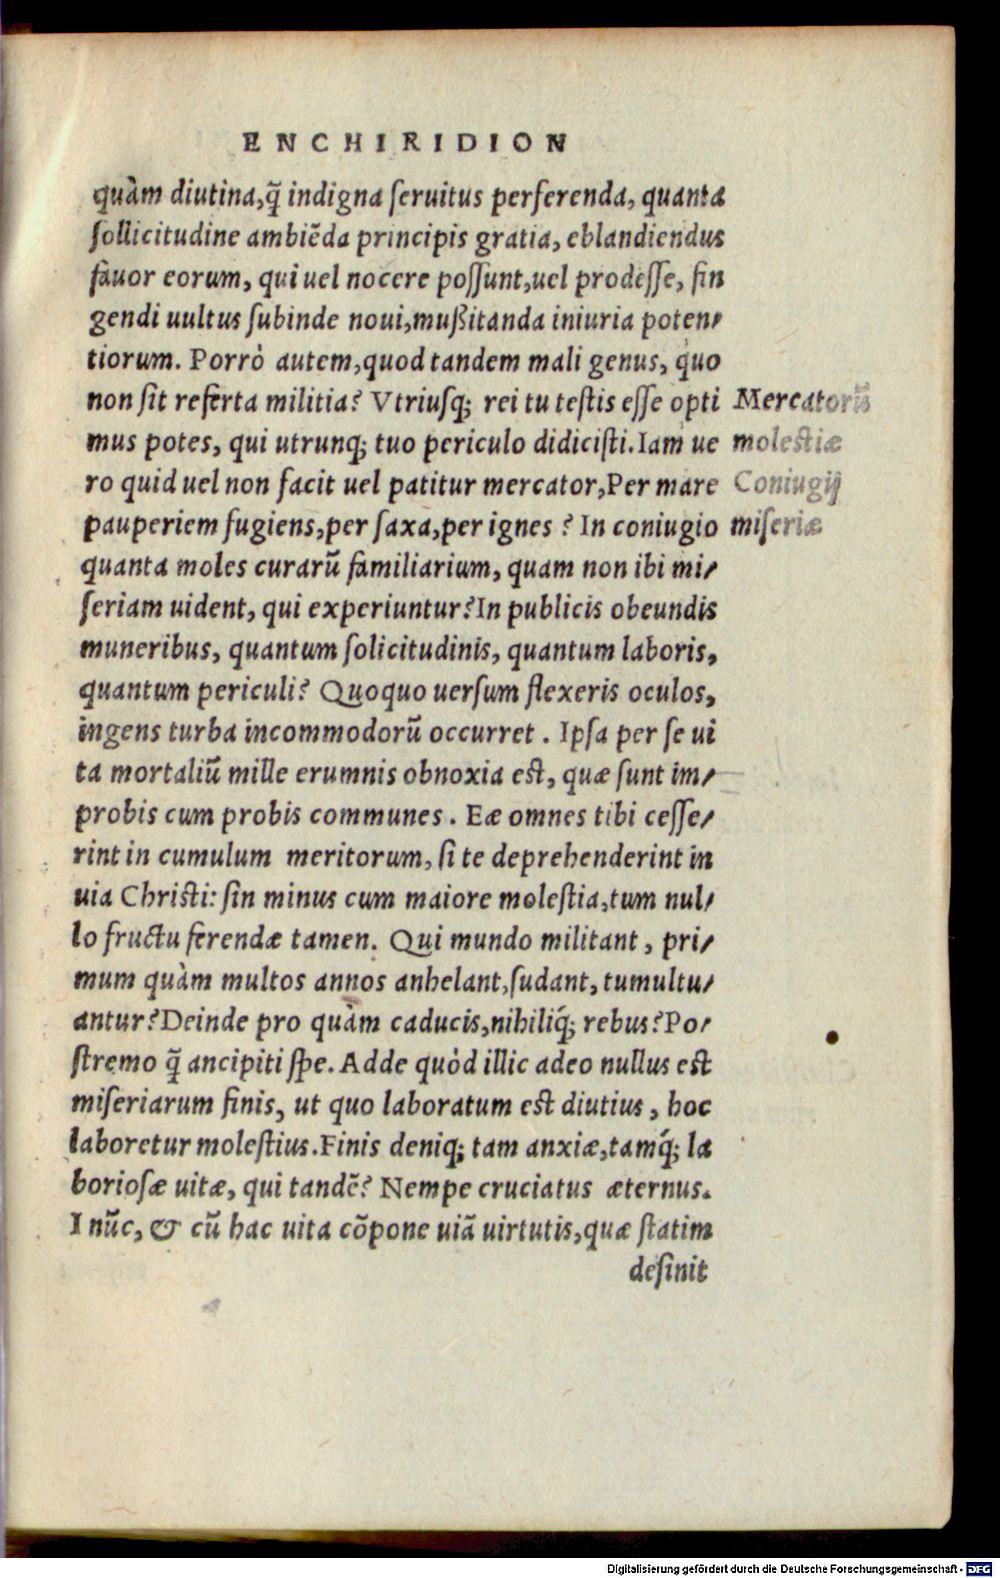 ENCHIRIDION
quàm diutina,q̃ indigna ſeruitus perferenda, quanta
ſollicitudine ambiẽda principis gratia, eblandiendus
fauor eorum, qui uel nocere poſſunt,uel prodeſſe, fin
gendi uultus ſubinde noui,mußitanda iniuria poten-
tiorum. Porrò autem,quod tandem mali genus, quo
non ſit referta militia? Vtriuſq; rei tu teſtis eſſe opti
mus potes, qui utrunq; tuo periculo didiciſti.Iam ue
ro quid uel non facit uel patitur mercator,Per mare
pauperiem fugiens,per ſaxa,per ignes ? In coniugio
Mercatorũ
moleſtiæ
Coniugij
miſeriæ
quanta moles curarũ familiarium, quam non ibi mi-
ſeriam uident, qui experiuntur?In publicis obeundis
muneribus, quantum ſolicitudinis, quantum laboris,
quantum periculi? Quoquo uerſum flexeris oculos,
ingens turba incommodorũ occurret . Ipſa per ſe ui
ta mortaliũ mille erumnis obnoxia eſt, quæ ſunt im-
probis cum probis communes . Eæ omnes tibi ceſſe-
rint in cumulum meritorum, ſi te deprehenderint in
uia Chriſti: ſin minus cum maiore moleſtia,tum nul-
lo fructu ferendæ tamen. Qui mundo militant , pri-
mum quàm multos annos anhelant,ſudant, tumultu-
antur?Deinde pro quàm caducis,nihiliq́; rebus?Po-
ſtremo q̃ ancipiti ſpe. Adde quòd illic adeo nullus eſt
miſeriarum finis, ut quo laboratum eſt diutius , hoc
laboretur moleſtius.Finis deniq; tam anxiæ,tamq́; la
borioſæ uitæ, qui tandẽ? Nempe cruciatus æternus.
I nũc, & cũ hac uita cõpone uiã uirtutis,quæ ſtatim
deſinit
Digitalisierung gefördert durch die Deutsche Forschungsgemeinschaft - DFG